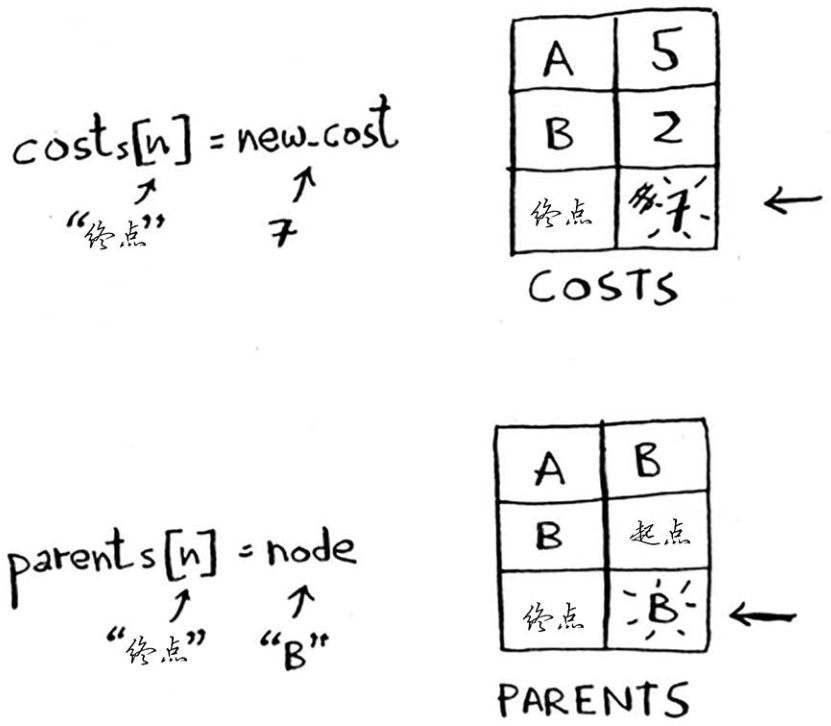 costs[n] = new_cost
“终点” 7
A 5
B 2
终点 7
COSTS
parents[n] = node
“终点” “B”
A B
B 起点
终点 B
PARENTS